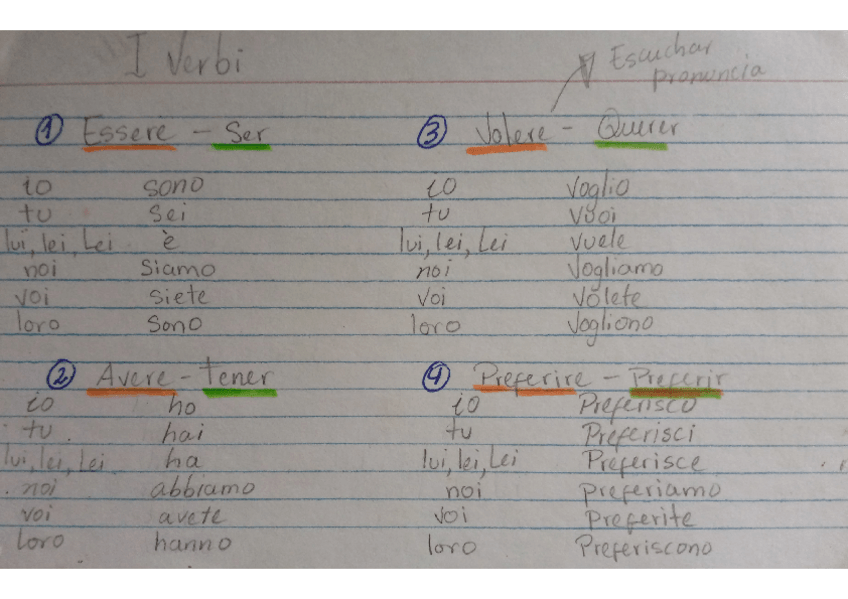 I Verbi
① Essere - Ser
io sono
tu sei
lui, lei, Lei è
noi siamo
voi siete
loro sono
② Avere - tener
io ho
tu hai
lui, lei, Lei ha
noi abbiamo
voi avete
loro hanno
Escuchar
pronuncia
③ Volere - Querer
io voglio
tu vuoi
lui, lei, Lei vuele
noi vogliamo
voi volete
loro vogliono
④ Preferire - Preferir
io Preferisco
tu Preferisci
lui, lei, Lei Preferisce
noi preferiamo
voi preferite
loro Preferiscono